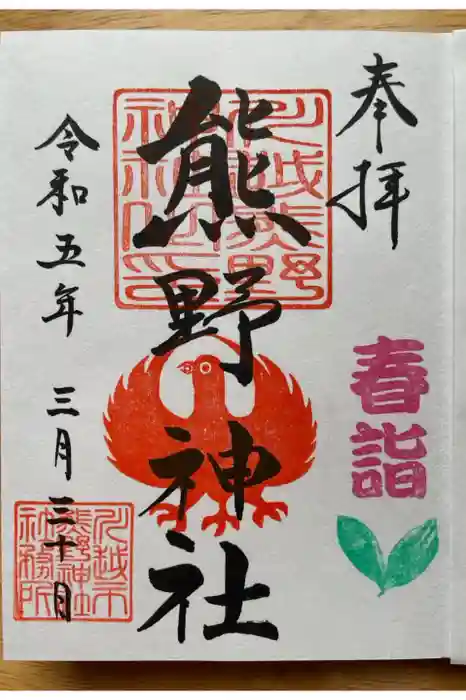 奉拝
春詣
熊野神社
川越熊野神社印
令和五年 三月 三十日
川越市熊野神社社務所